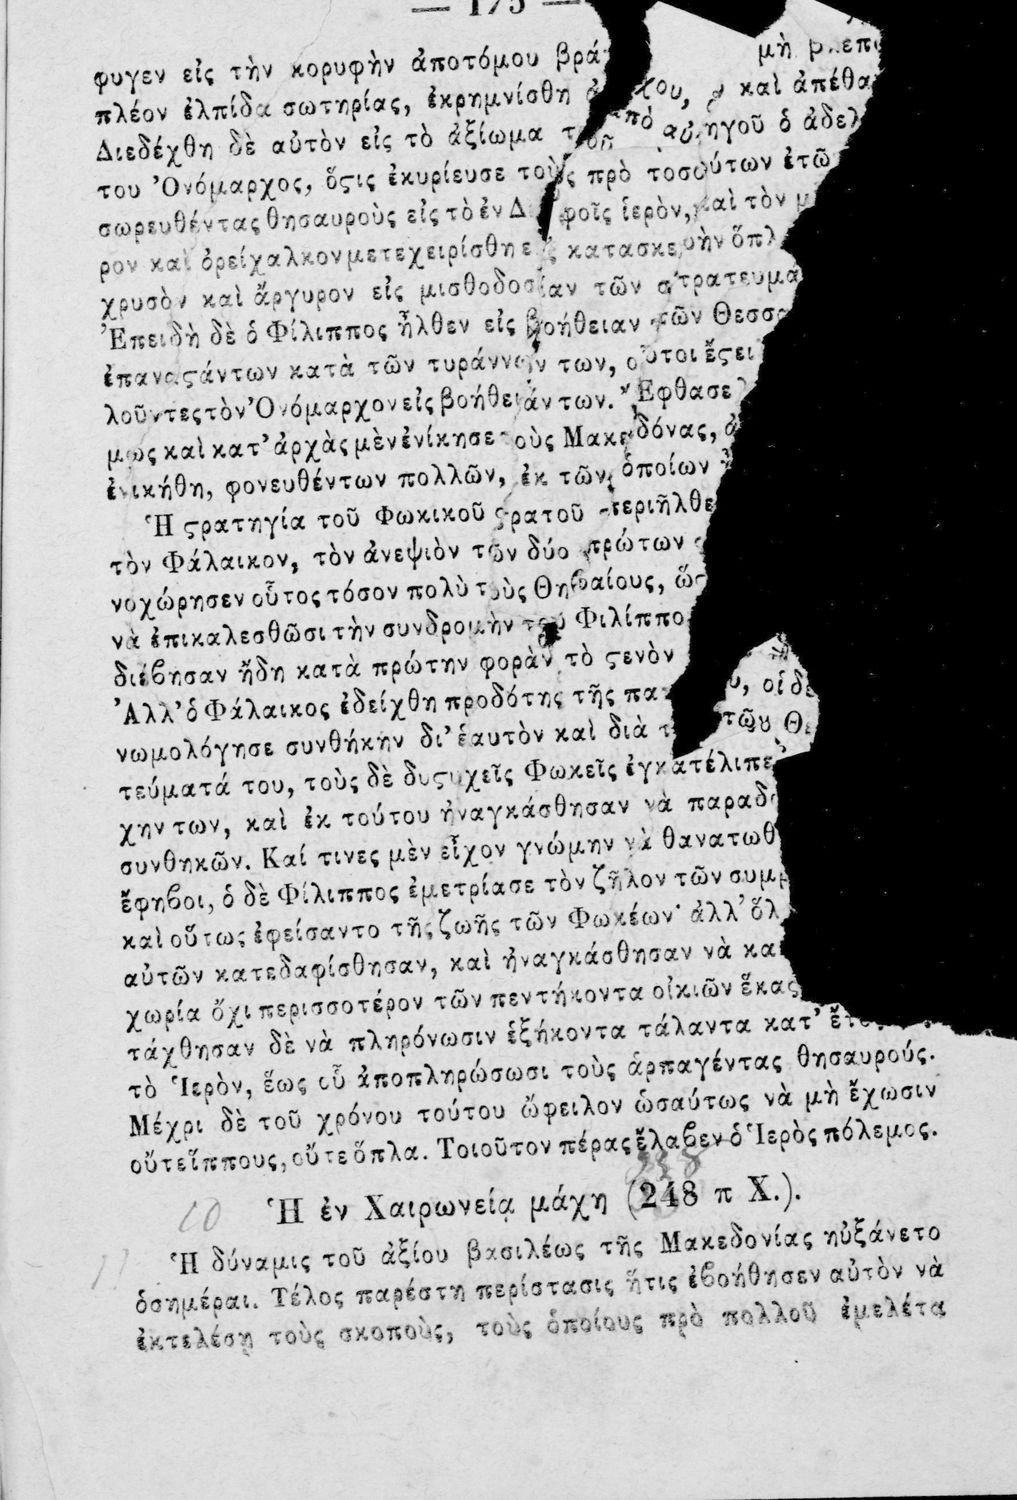 — 175 —
φυγεν εἰς τὴν κορυφὴν ἀποτόμου μὴ
πλέον ἐλπίδα σωτηρίας, ἐκρημνίσθη καὶ
Διεδέχθη δὲ αὐτὸν εἰς τὸ ἀξίωμα ὁ
του Ὀνόμαρχος, ὅςις ἐκυρίευσε τοὺς πρὸ τοσούτων
σωρευθέντας θησαυροὺς εἰς τὸ ἐν ἱερὸν, καὶ τὸν
ρον καὶ ὀρείχαλκον μετεχειρίσθη κατασκευὴν
χρυσὸν καὶ ἄργυρον εἰς μισθοδοσίαν τῶν
Ἐπειδὴ δὲ ὁ Φίλιππος ἦλθεν εἰς βοήθειαν τῶν
ἐπαναςάντων κατὰ τῶν τυράννων των, οὗτοι
λοῦντες τὸν Ὀνόμαρχον εἰς βοήθειάν των. Ἔφθασε
μως καὶ κατ' ἀρχὰς μὲν ἐνίκησε τοὺς Μακεδόνας,
ἐνικήθη, φονευθέντων πολλῶν, ἐκ τῶν ὁποίων
Ἡ ςρατηγία τοῦ Φωκικοῦ ςρατοῦ περιῆλθε
τὸν Φάλαικον, τὸν ἀνεψιὸν τῶν δύο πρώτων
νοχώρησεν οὗτος τόσον πολὺ τοὺς Θηβαίους,
νὰ ἐπικαλεσθῶσι τὴν συνδρομὴν τοῦ
διέβησαν ἤδη κατὰ πρώτην φορὰν τὸ ςενὸν
Ἀλλ' ὁ Φάλαικος ἐδείχθη προδότης τῆς οἱ δὲ
νωμολόγησε συνθήκην δι' ἑαυτὸν καὶ διὰ
τεύματά του, τοὺς δὲ δυςυχεῖς Φωκεῖς
χην των, καὶ ἐκ τούτου ἠναγκάσθησαν νὰ
συνθηκῶν. Καί τινες μὲν εἶχον γνώμην νὰ
ἔφηβοι, ὁ δὲ Φίλιππος ἐμετρίασε τὸν ζῆλον τῶν
καὶ οὕτως ἐφείσαντο τῆς ζωῆς τῶν Φωκέων·
αὐτῶν κατεδαφίσθησαν, καὶ ἠναγκάσθησαν νὰ
χωρία ὄχι περισσοτέρον τῶν πεντήκοντα οἰκιῶν
τάχθησαν δὲ νὰ πληρόνωσιν ἑξήκοντα τάλαντα κατ'
τὸ Ἱερὸν, ἕως οὗ ἀποπληρώσωσι τοὺς ἁρπαγέντας θησαυρούς.
Μέχρι δὲ τοῦ χρόνου τούτου ὤφειλον ὡσαύτως νὰ μὴ ἔχωσιν
οὔτε ἵππους, οὔτε ὅπλα. Τοιοῦτον πέρας ἔλαβεν ὁ Ἱερὸς πόλεμος.
338
10 Ἡ ἐν Χαιρωνείᾳ μάχη (248 π Χ.).
Ἡ δύναμις τοῦ ἀξίου βασιλέως τῆς Μακεδονίας ηὐξάνετο
ὁσημέραι. Τέλος παρέστη περίστασις ἥτις ἐβοήθησεν αὐτὸν νὰ
ἐκτελέσῃ τοὺς σκοποὺς, τοὺς ὁποίους πρὸ πολλοῦ ἐμελέτα